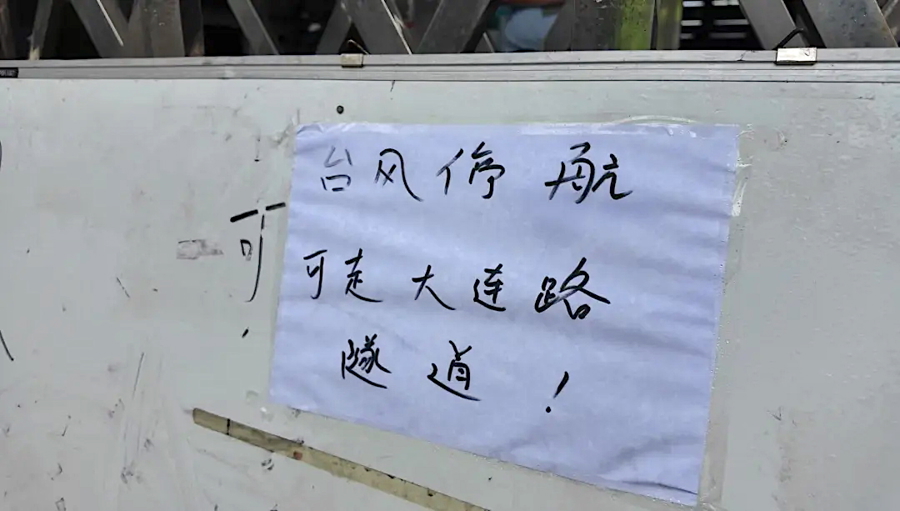 台风停航
可
可走大连路
隧道！